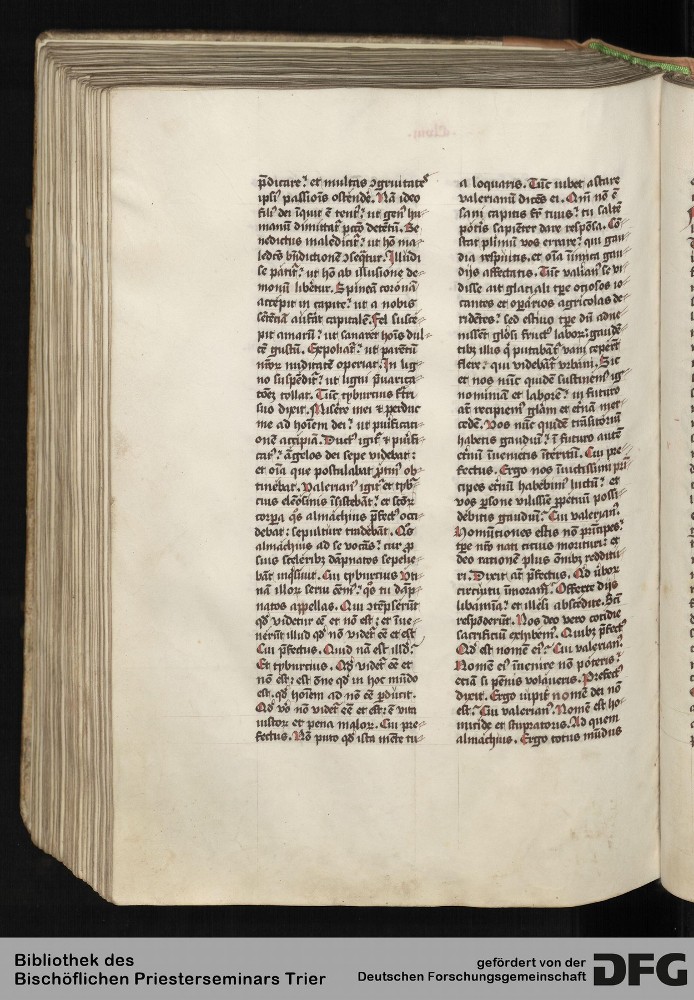 p̄dicare? et multas ꝯgruitates
ipsi passiōis ostēdē. Nā ideo
fili dei īquit ē tent? ut gen hu-
manū dimittat pctō detētū. Be
nedictus maledicit? ut hō ma-
ledcs bn̄dictionē ꝯseqtur. Illudi
se patit? ut hō ab illusione de-
monū libetur. Spineā coronā
accepit in capite? ut a nobis
sētēciā aufat capitalē. Fel susce-
pit amarū? ut sanaret hoīs dul-
cē gustū. Expoliat? ut parētū
nrōr nuditatē operiat. In lig-
no suspēdit? ut ligni p̄uarica-
cōez tollat. Tūc tyburcius fr̄i
suo dixit. Misere mei et perduc
me ad hoīem dei? ut purificati-
onē accipiā. Duct igit et puifi-
cat? āgelos dei sepe videbat:
et oīa que postulabat ptin ob-
tinebat. Valerian igit et tyb
cius elēosinis īsistebāt? et sctōr
corpa qs almachius p̄fect occi-
debat: sepulture tradebāt. Qs
almachius ad se vocās? cur p
suis sceleribz dāpnatos sepelie-
bāt īqsiuit. Cui tyburcius Uti-
nā illor serui eēm? qs tu dāp-
natos appellas. Qui ꝯtēpserūt
qd videtur eē et nō est: et īue-
nerūt illud qd nō videt eē et est
Cui p̄fectus. Quid nā est illd?
Et tyburcius. Qd videt eē et
nō est: est ōne qd in hoc mūdo
est. qd hoīem ad nō eē pducit.
Qd vō nō videt eē et est: ē vita
iustor et pena malor. Cui pre-
fectus. Nō puto qd ista mēte tu-
a loquaris. Tūc iubet astare
valerianū dicēs ei. Qm̄ nō ē
sani capitis fr̄ tuus? tu saltē
poteris sapiēter dare respōsa. Cō-
stat plimū vos errare? qui gau-
dia respuitis. et oīa inimica gau-
dijs affectatis. Tūc valian se vi-
disse ait glaciali tpe ociosos io-
cantes et opārios agricolas de-
ridētes? sed estiuo tpe dū adue
nissēt glōsi fruct labor: gaudē-
tibz illis q putabāt vani ceperūt
flere? qui videbāt urbani. Sic
et nos nūc quidē sustinem ig-
nominiā et laborē? in futuro
aūt recipiem glām et etnā mer-
cedē. Vos nūc quidē trāsitoriū
habetis gaudiū? ī futuro autē
etnū īuenietis īteritū. Cui pre-
fectus. Ergo nos īuictissimi pri-
cipes etnū habebim luctū? et
vos psone vilissie ppetuū possi-
debitis gaudiū? Cui valerian.
Homūciones estis nō principes?
tpe nrō nati cicius morituri: et
deo rationē plus omibz redditu-
ri. Dixit aūt p̄fectus. Qd ūbor
circuitu īmoram? Offerte dijs
libamīa? et illesi abscedite. Scī
respōderūt. Nos deo vero cotidie
sacrificiū exhibem. Quibz p̄fect
Qd est nomē ei? Cui valerian.
Nomē ei īuenire nō poteris?
etiā si pēnis volaueris. Prefect
dixit. Ergo iupit nomē dei nō
est? Cui valerian. Nomē est ho-
micide et stupratoris. Ad quem
almachius. Ergo totus mūdus
Bibliothek des
Bischöflichen Priesterseminars Trier
gefördert von der
Deutschen Forschungsgemeinschaft
DFG